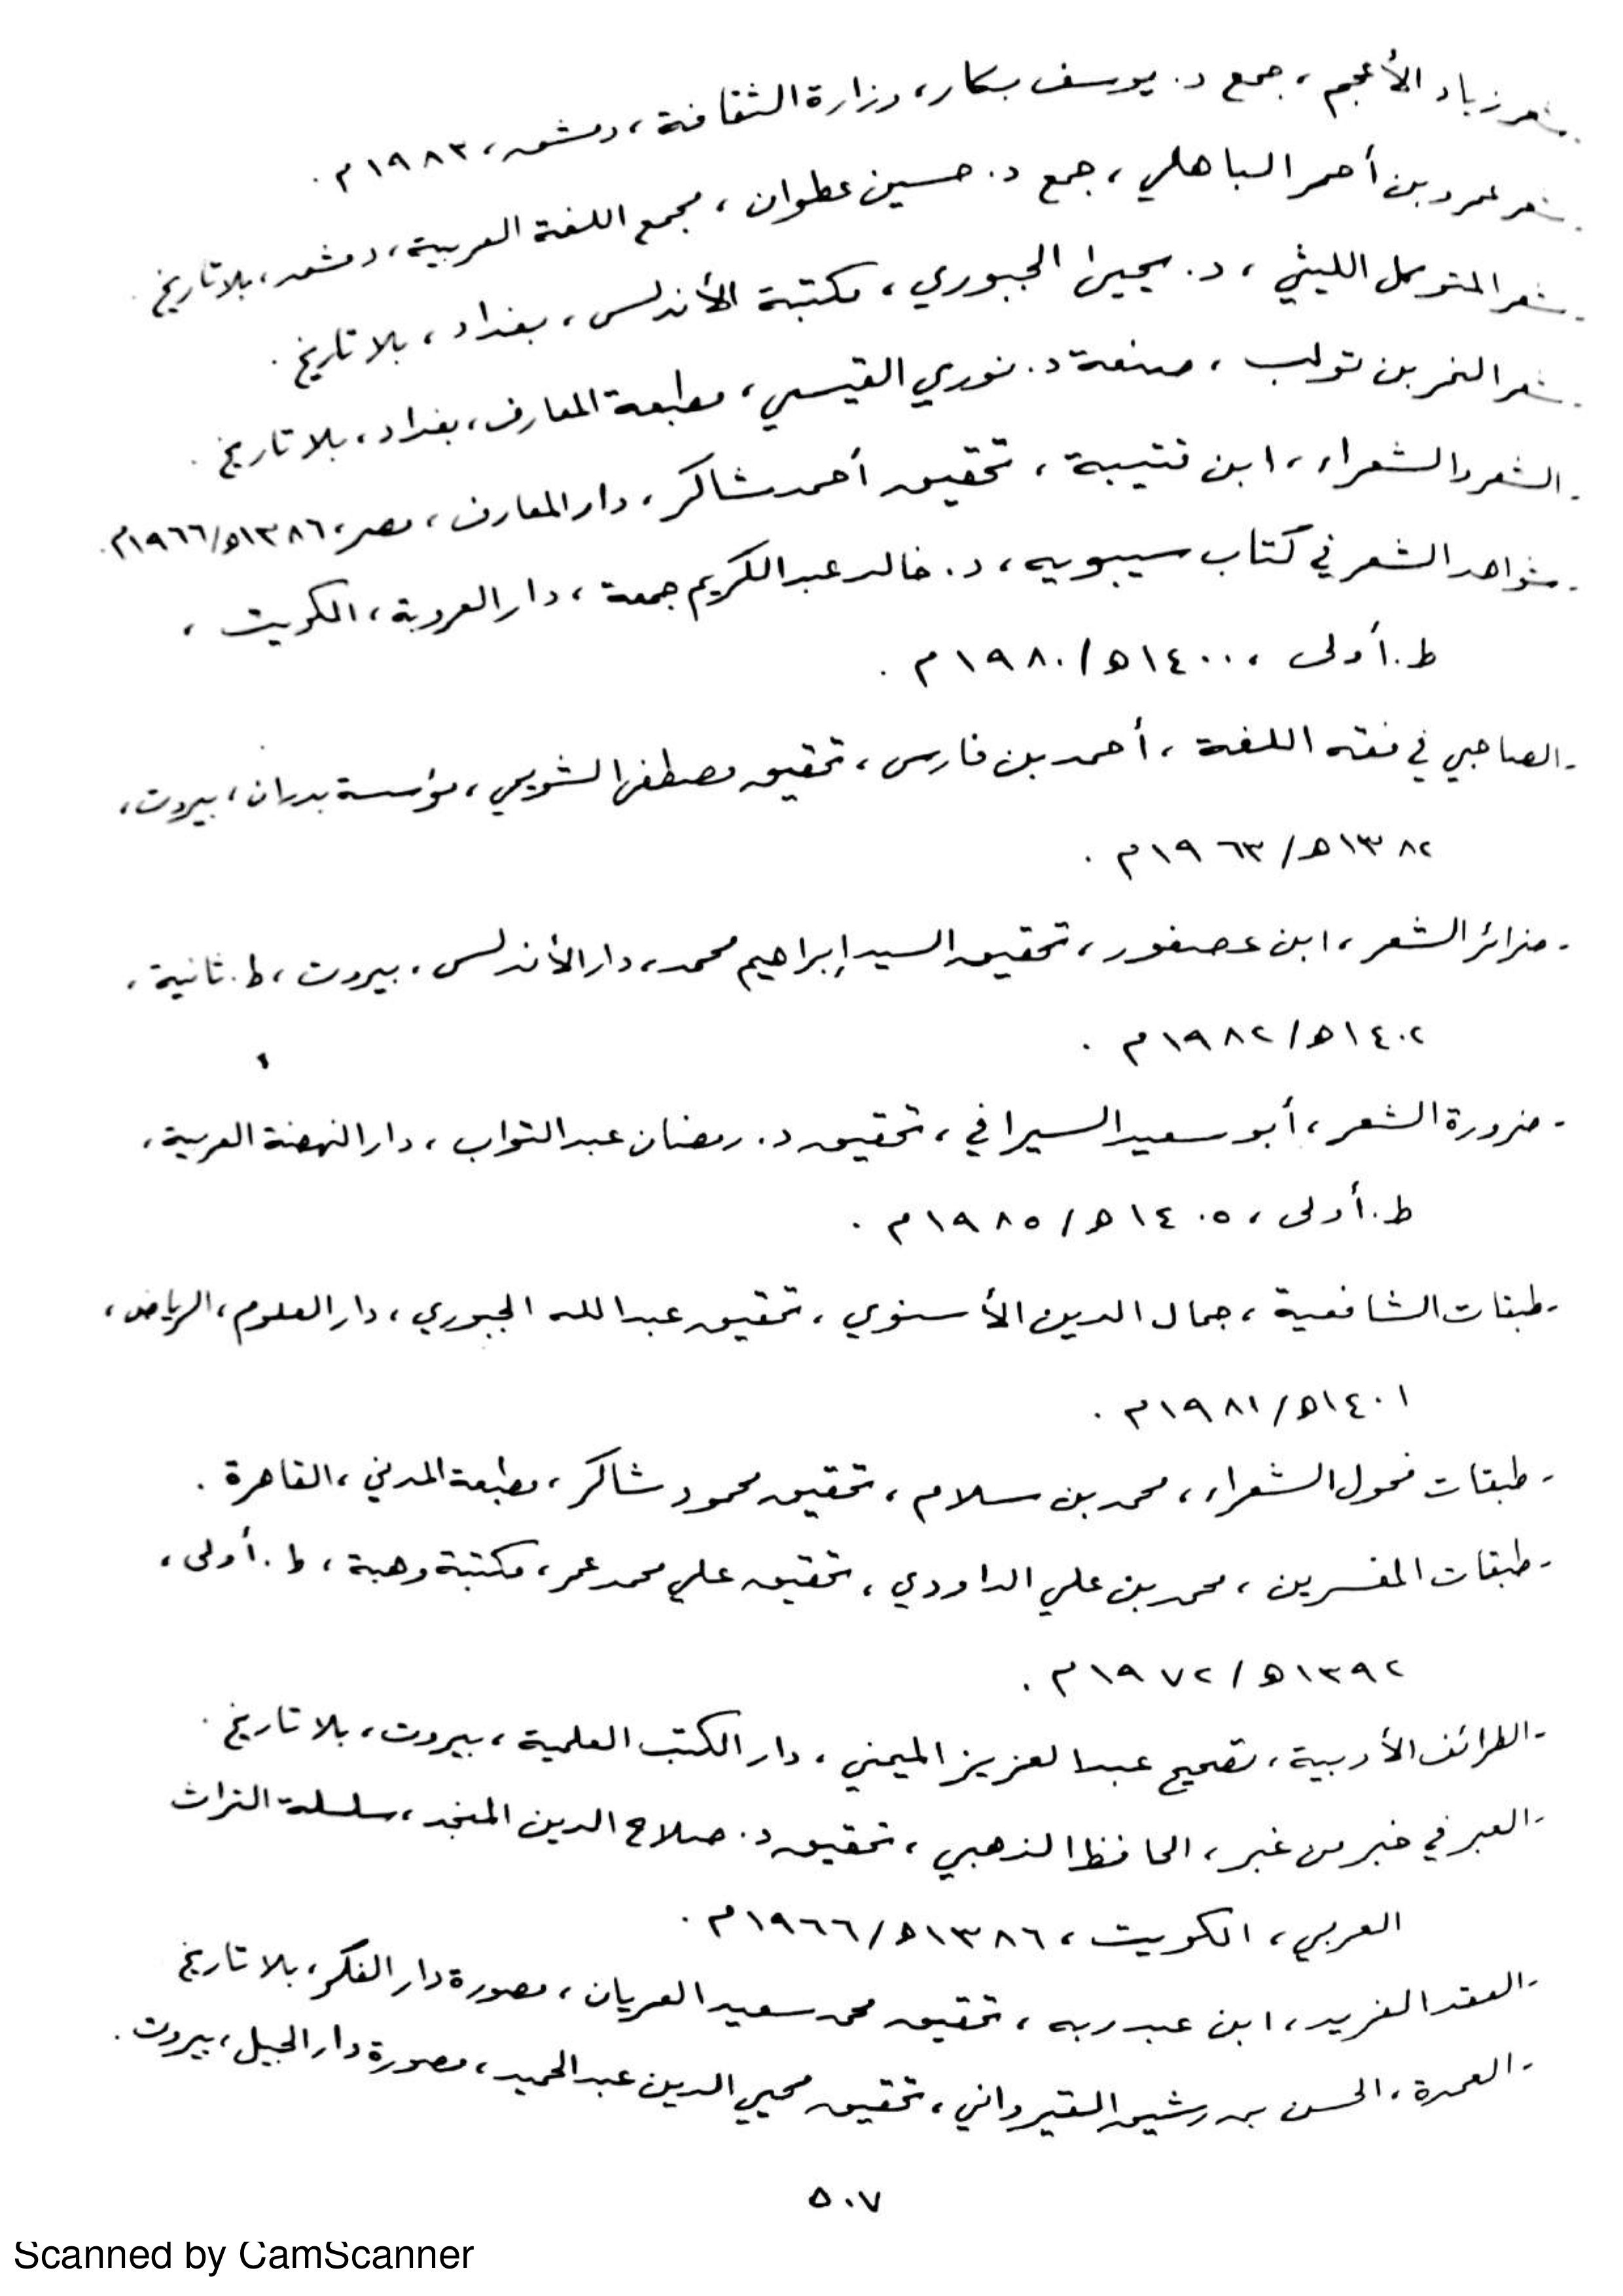 - شعر زياد الأعجم ، جمع د. يوسف بكار، وزارة الثقافة ، دمشق ، ١٩٨٣م .
- شعر عمرو بن أحمر الباهلي ، جمع د. حسين عطوان ، مجمع اللغة العربية ، دمشق ، بلا تاريخ .
- شعر المتوكل الليثي ، د. يحيى الجبوري ، مكتبة الأندلس ، بغداد ، بلا تاريخ .
- شعر النمر بن تولب ، صنعة د. نوري القيسي ، مطبعة المعارف ، بغداد ، بلا تاريخ .
- الشعر والشعراء ، ابن قتيبة ، تحقيق أحمد شاكر ، دار المعارف ، مصر ، ١٣٨٦ه/١٩٦٦م.
- شواهد الشعر في كتاب سيبويه ، د. خالد عبد الكريم جمعة ، دار العروبة ، الكويت ،
ط. أولى ، ١٤٠٠ه/١٩٨٠م .
- الصاحبي في فقه اللغة ، أحمد بن فارس ، تحقيق مصطفى الشويمي ، مؤسسة بدران ، بيروت ،
١٣٨٢ه/١٩٦٣م .
- ضرائر الشعر ، ابن عصفور ، تحقيق السيد إبراهيم محمد ، دار الأندلس ، بيروت ، ط. ثانية ،
١٤٠٢ه/١٩٨٢م .
- ضرورة الشعر ، أبو سعيد السيرافي ، تحقيق د. رمضان عبد التواب ، دار النهضة العربية ،
ط. أولى ، ١٤٠٥ه/١٩٨٥م .
- طبقات الشافعية ، جمال الدين الأسنوي ، تحقيق عبد الله الجبوري ، دار العلوم ، الرياض ،
١٤٠١ه/١٩٨١م .
- طبقات فحول الشعراء ، محمد بن سلام ، تحقيق محمود شاكر ، مطبعة المدني ، القاهرة .
- طبقات المفسرين ، محمد بن علي الداودي ، تحقيق علي محمد عمر ، مكتبة وهبة ، ط. أولى ،
١٣٩٢ه/١٩٧٢م .
- الطرائف الأدبية ، تصحيح عبد العزيز الميمني ، دار الكتب العلمية ، بيروت ، بلا تاريخ .
- العبر في خبر من غبر ، الحافظ الذهبي ، تحقيق د. صلاح الدين المنجد ، سلسلة التراث
العربي ، الكويت ، ١٣٨٦ه/١٩٦٦م .
- العقد الفريد ، ابن عبد ربه ، تحقيق محمد سعيد العريان ، مصورة دار الفكر ، بلا تاريخ
- العمدة ، الحسن بن رشيق القيرواني ، تحقيق محيي الدين عبد الحميد ، مصورة دار الجيل ، بيروت .
٥٠٧
Scanned by CamScanner